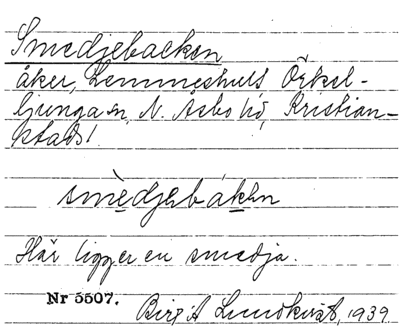 Smedjebacken
åker, Lemmeshult Örkel-
ljunga sn, N. Åsbo hd, Kristian-
stads l.
smèdjebákən
Här ligger en smedja.
Nr 5507.
Birgit Lundkvist, 1939